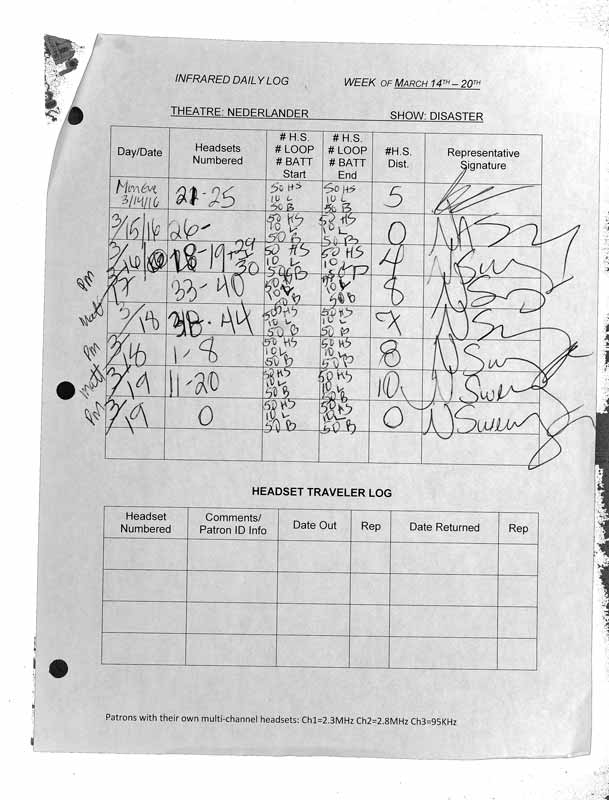 INFRARED DAILY LOG WEEK OF MARCH 14TH – 20TH
THEATRE: NEDERLANDER SHOW: DISASTER
Day/Date Headsets Numbered # H.S. # LOOP # BATT Start # H.S. # LOOP # BATT End #H.S. Dist. Representative Signature
Mon Eve 3/14/16 21-25 50 HS 10 L 50 B 50 HS 10 L 50 B 5
3/15/16 26- 50 HS 10 L 50 B 50 HS 10 L 50 B 0
3/16/16 18-19 + 29 30 50 HS 10 L 50 B 50 HS 10 L 50 B 4
PM 3/17 33-40 50 HS 10 L 50 B 50 HS 10 L 50 B 8
Matt 3/18 38-44 50 HS 10 L 50 B 50 HS 10 L 50 B 7
PM 3/18 1-8 50 HS 10 L 50 B 50 HS 10 L 50 B 8
Matt 3/19 11-20 50 HS 10 L 50 B 50 HS 10 L 50 B 10
PM 3/19 0 50 HS 10 L 50 B 50 HS 10 L 50 B 0
HEADSET TRAVELER LOG
Headset Numbered Comments/ Patron ID Info Date Out Rep Date Returned Rep
Patrons with their own multi-channel headsets: Ch1=2.3MHz Ch2=2.8MHz Ch3=95KHz